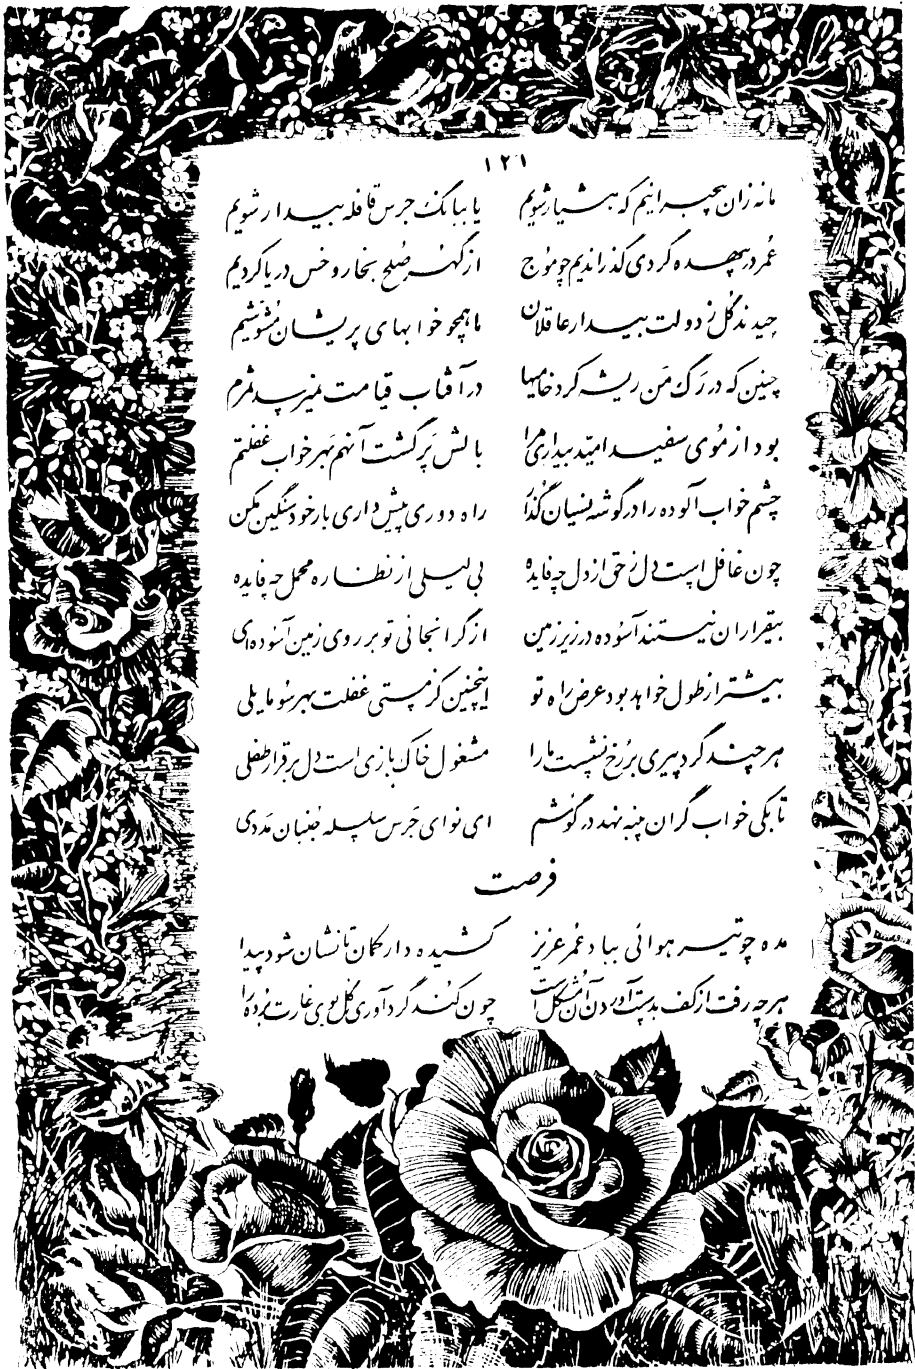 ۱۲۱
ما نه زان بیخبرانیم که هشیار شویم یا ببانگ جرس قافله بیدار شویم
عُمر در بیهده گردی گذراندیم چو موج از گهر صُلح بخار و خس دریا کردیم
چیدند گُل ز دولت بیدار عاقلان ما همچو خوابهای پریشان مُشوّشیم
چنین که در رَگ مَن ریشه کرد خامیها در آفتاب قیامت نمیرسد ثمرم
بود از مُوی سفید امیّد بیداری مرا بالش پَر گشت آنهم بهر خواب غفلتم
چشم خواب آلوده را در گوشه نسیان گُذار راه دوری پیش داری بار خود سنگین مکن
چون غافل است دل ز حق از دل چه فایده بی لیلی از نظاره محمل چه فایده
بیقراران نیستند آسوده در زیر زمین از گرانجانی تو بر روی زمین آسُوده‌ای
بیشتر از طول خواهد بود عرض راه تو اینچنین کز مستی غفلت بهر سُو مایلی
هر چند گرد پیری بر رُخ نشست ما را مشغول خاک بازی است دل برقرار طفلی
تا بکی خواب گران پنبه نهد در گوشم ای نوای جَرس سلسله جُنبان مَددی
فرصت
مده چو تیر هوائی بباد عُمر عزیز کشیده دار کمان تا نشان شود پیدا
هر چه رفت از کف بدست آوردن آن مُشکل است چون کُند گرد آوری گل بوی غارت بُرده را